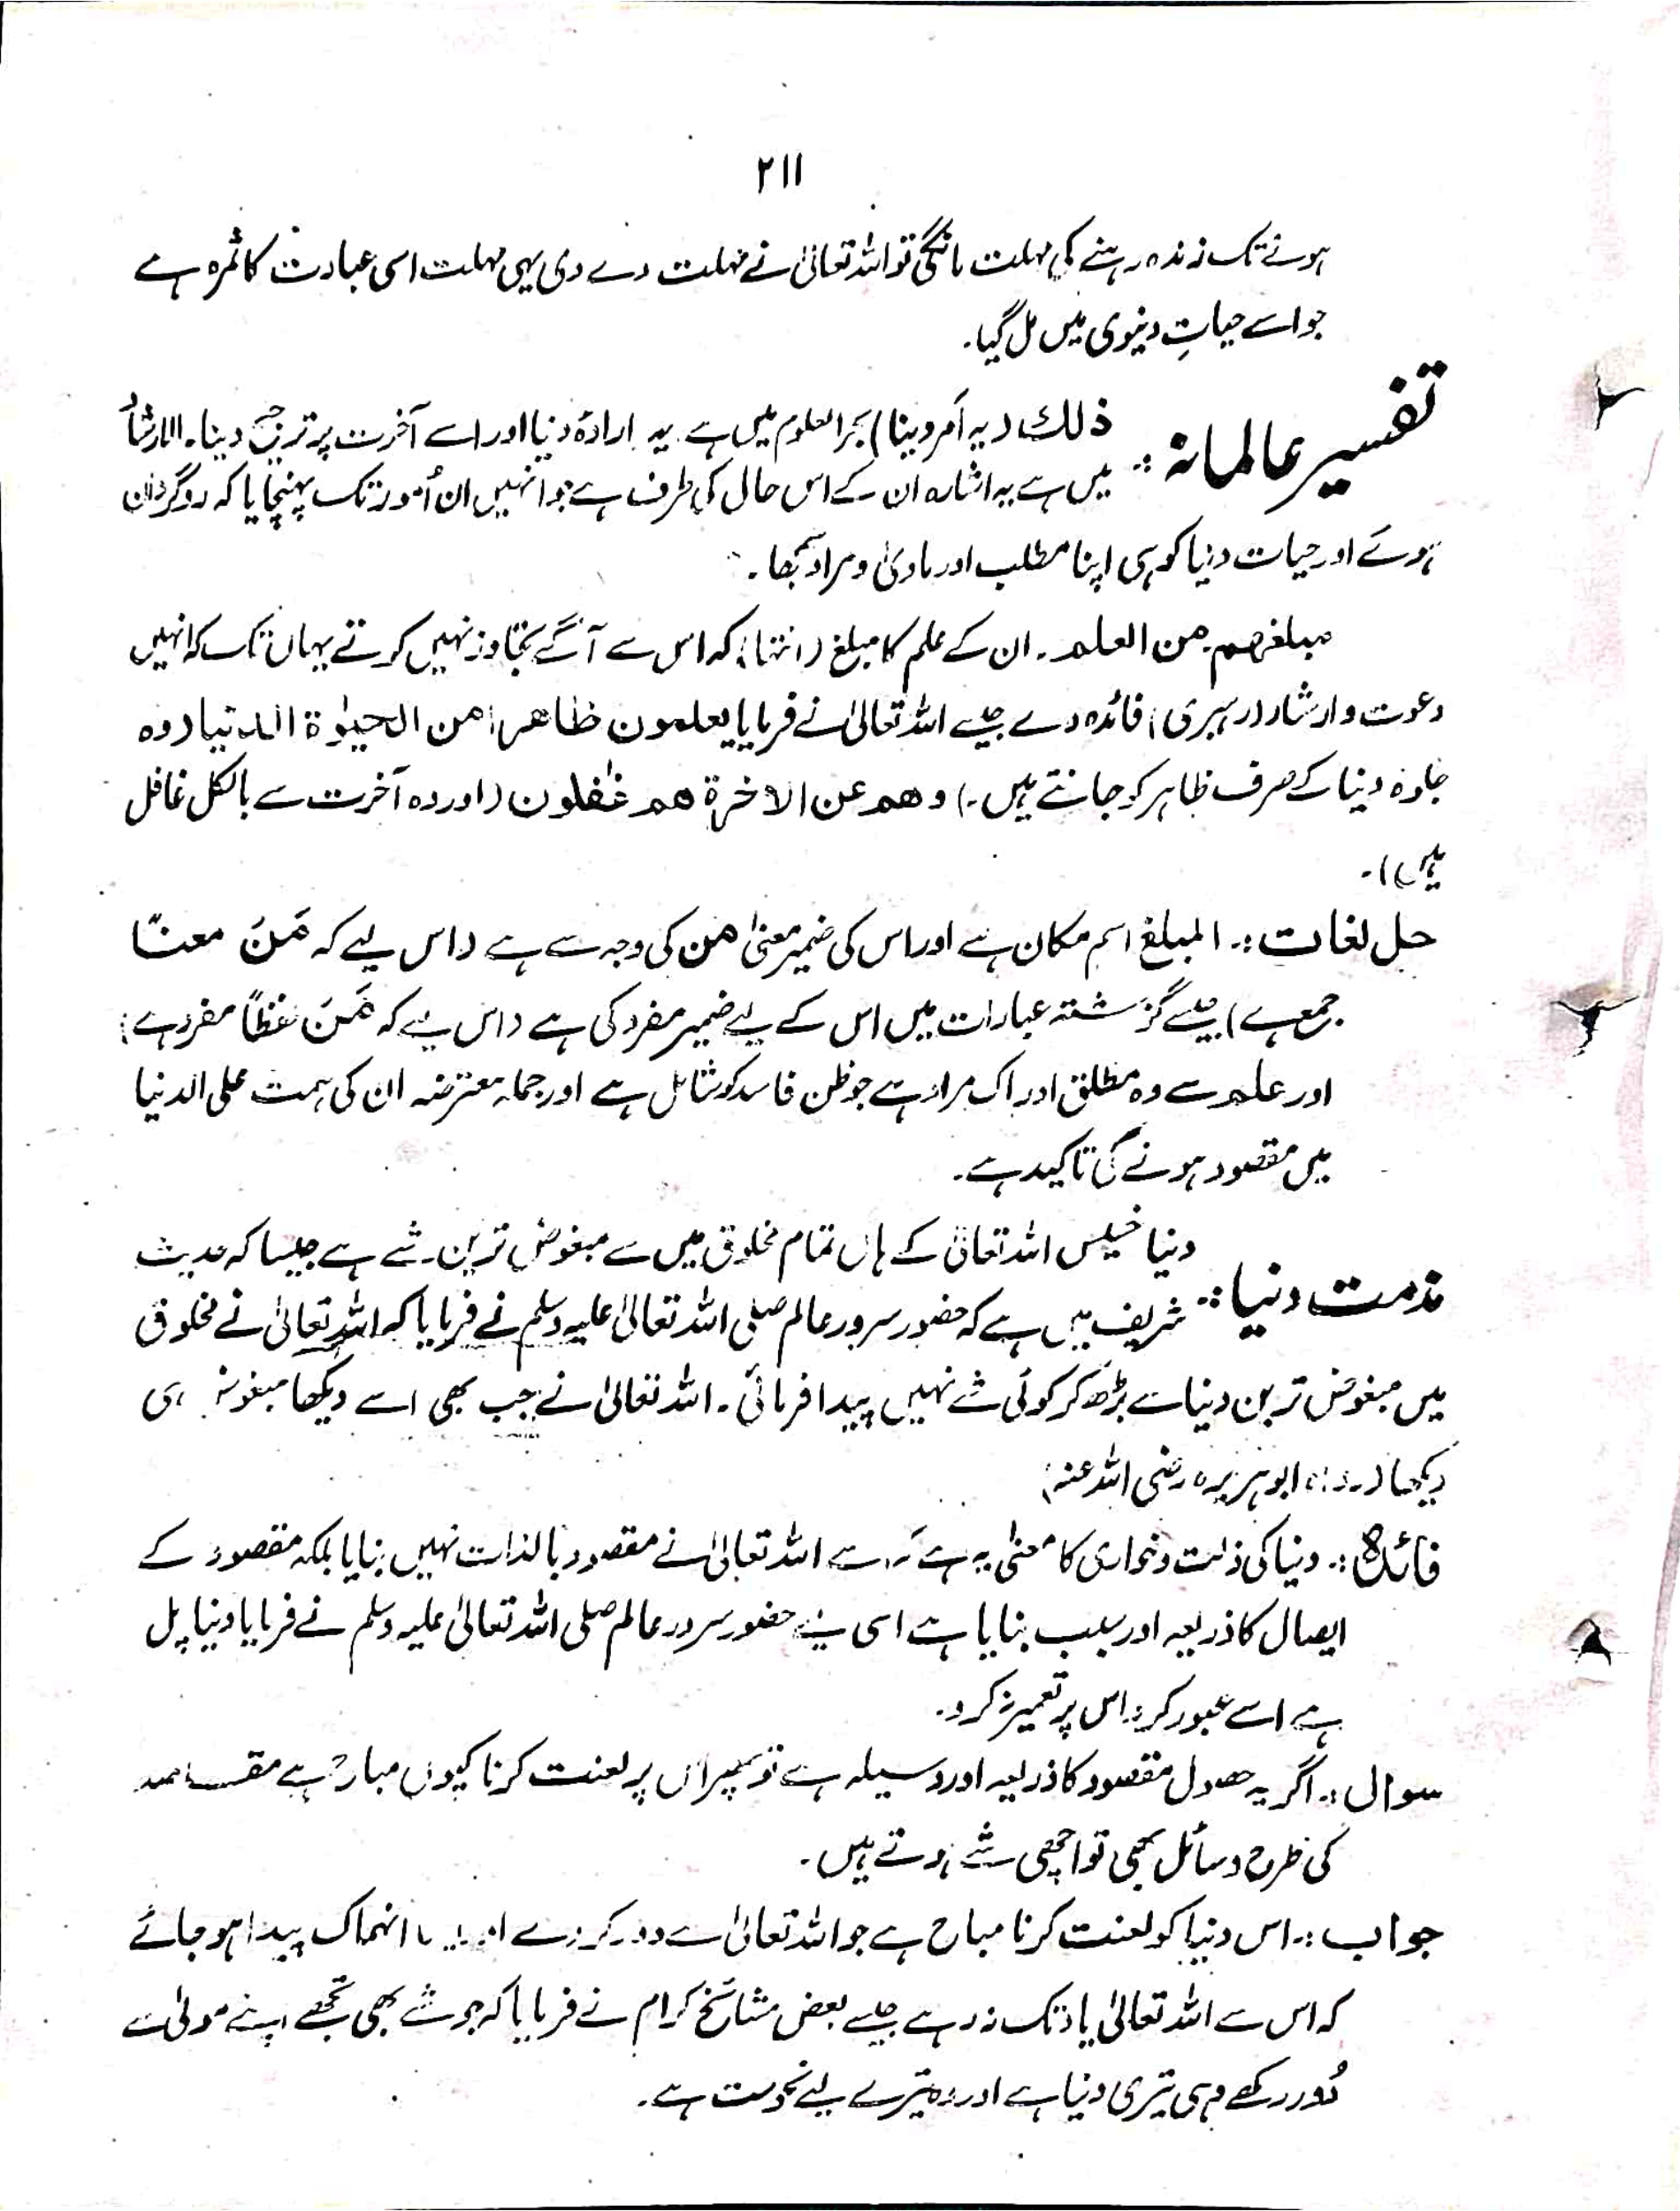 ۲۱۱
ہونے تک زندہ رہنے کی مہلت مانگی تو اللہ تعالیٰ نے مہلت دے دی یہی مہلت اسی عبادت کا ثمرہ ہے
جو اسے حیاتِ دنیوی میں مل گیا۔
تفسیر عالمانہ :۔ ذلك (یہ اَمر دینا) بحر العلوم میں ہے یہ ارادۂ دنیا اور اسے آخرت پر ترجیح دینا۔ الارشاد
میں ہے یہ اشارہ ان کے اس حال کی طرف ہے جو انہیں ان اُمور تک پہنچایا کہ روگردان
ہوئے اور حیات دنیا کو ہی اپنا مطلب اور ماویٰ و مراد سمجھا۔
مبلغهم من العلم۔ ان کے علم کا مبلغ (انتہا) کہ اس سے آگے تجاوز نہیں کرتے یہاں تک کہ انہیں
دعوت و ارشاد (رہبری) فائدہ دے جیسے اللہ تعالیٰ نے فرمایا یعلمون ظاهرا من الحیوٰة الدنیا (وہ
حیاۃ دنیا کے صرف ظاہر کو جانتے ہیں۔) وهم عن الاخرة هم غٰفلون (اور وہ آخرت سے بالکل غافل
ہیں)۔
حل لغات :۔ المبلغ اسم مکان ہے اور اس کی ضمیر معنیٰ من کی وجہ سے ہے (اس لیے کہ مَنْ معناً
جمع ہے) جیسے گزشتہ عبارات میں اس کے لیے ضمیر مفرد کی ہے (اس لیے کہ مَنْ لفظاً مفرد ہے)
اور علم سے وہ مطلق ادراک مراد ہے جو ظن فاسد کو شامل ہے اور جملہ معترضہ ان کی ہمت علی الدنیا
میں مقصود ہونے کی تاکید ہے۔
مذمت دنیا :۔ دنیا خسیس اللہ تعالیٰ کے ہاں تمام مخلوق میں سے مبغوض ترین شے ہے جیسا کہ حدیث
شریف میں ہے کہ حضور سرور عالم صلی اللہ تعالیٰ علیہ وسلم نے فرمایا کہ اللہ تعالیٰ نے مخلوق
میں مبغوض ترین دنیا سے بڑھ کر کوئی شے نہیں پیدا فرمائی۔ اللہ تعالیٰ نے جب بھی اسے دیکھا مبغوض ہی
دیکھا (رواہ ابوہریرہ رضی اللہ عنہ)
فائدہ :۔ دنیا کی ذلت و خواری کا معنیٰ یہ ہے کہ اسے اللہ تعالیٰ نے مقصود بالذات نہیں بنایا بلکہ مقصود کے
ایصال کا ذریعہ اور سبب بنایا ہے اسی لیے حضور سرور عالم صلی اللہ تعالیٰ علیہ وسلم نے فرمایا دنیا پل
ہے اسے عبور کرو اس پر تعمیر نہ کرو۔
سوال :۔ اگر یہ حصول مقصود کا ذریعہ اور وسیلہ ہے تو پھر اس پر لعنت کرنا کیوں مباح ہے مقاصد
کی طرح وسائل بھی تو اچھی شے ہوتے ہیں۔
جواب :۔ اس دنیا کو لعنت کرنا مباح ہے جو اللہ تعالیٰ سے دور کر دے انہماک پیدا ہو جائے
کہ اس سے اللہ تعالیٰ یاد تک نہ رہے جیسے بعض مشائخ کرام نے فرمایا کہ جو شے بھی تجھے اپنے مولیٰ سے
دُور رکھے وہی تیری دنیا ہے اور وہ تیرے لیے نحوست ہے۔